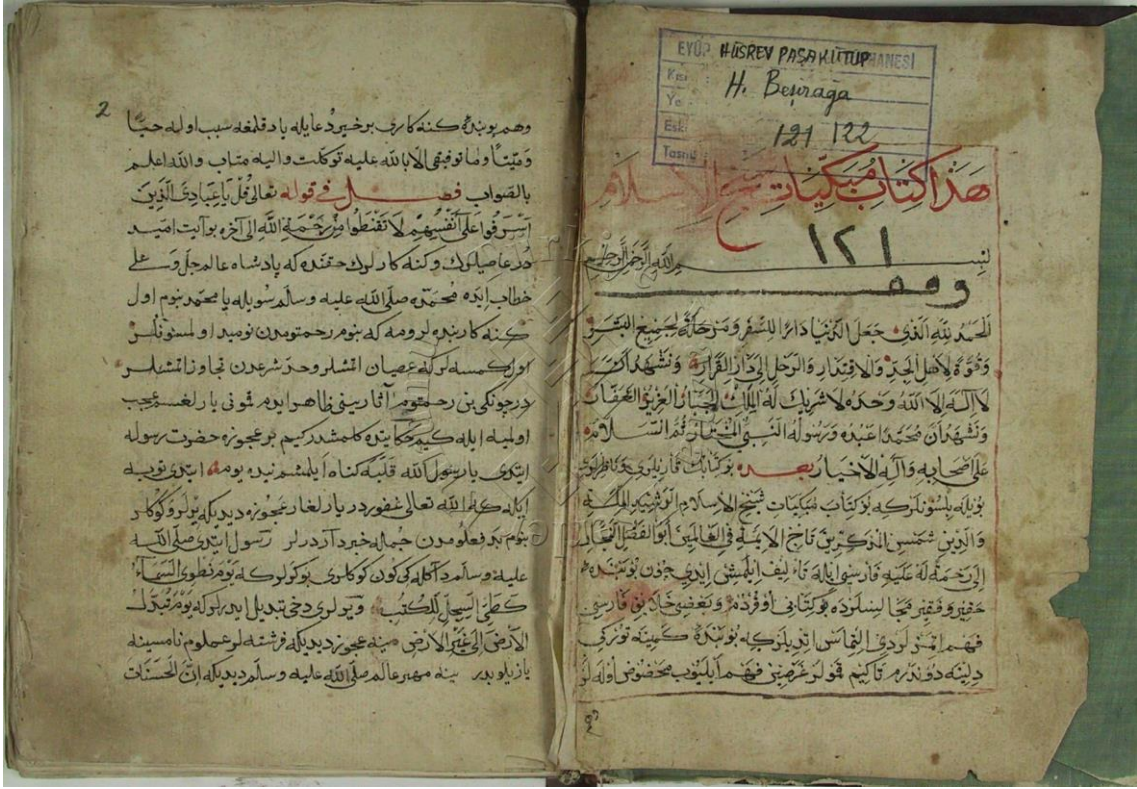 EYÜP HÜSREV PAŞA KÜTÜPHANESİ
H. Beşirağa
121 122
هذا كتاب مبكيات شيخ الاسلام
١٢١
بسم الله الرحمن الرحيم
وقف
الحمد لله الذي جعل الدنيا دارا للسفر ومرحلة لجميع البشر
وقوة لاهل الجد والاقتدار والرحل الى دار القرار ونشهد ان
لا اله الا الله وحده لا شريك له الملك الجبار العزيز الغفار
ونشهد ان محمدا عبده ورسوله النبي المختار ثم السلام
على اصحابه وآله الاخيار بعده بو كتابك قاريلري وناظرلري
بويله بلسونلركه بو كتاب مبكيات شيخ الاسلام الملة
والدين شمس المذكرين تاج الايمة في العالمين ابو الفضل
الى رحمة الله عليه فارسى ايله تاءليف ايلمشى ايدي چون بو بنده
حقير وفقير مجالسلرده بو كتابى اوقردم وبعضى خلايق فارسى
فهم اتمزلردى التماس اتديلركه بو بنده كمينه تورقى
دلينه دوندرم تاكيم قولر غرضين فهم ايليوب محضوض اوله لر
2
وهم بو بنده كنه كارى بر خير دعا ايله ياد قلمغه سبب اوله حيا
وميتا وما توفيقى الا بالله عليه توكلت واليه متاب والله اعلم
بالصواب فصل فى قوله تعالى قل يا عبادى الذين
اسرفوا على انفسهم لا تقنطوا من رحمة الله الى آخره بو آيت اميد
در عاصيلرك وكنه كارلرك حقنده كه پادشاه عالم جل وعلى
خطاب ايده محمده صلى الله عليه وسلم سويله يا محمد بنوم اول
كنه كار بنده لرومه كه بنوم رحمتومدن نوميد اولمسونلر
اول كمسه لركه عصيان اتمشلر وحد شرعدن تجاوز اتمشلر
در چونكى بن رحمتومر آثارينى ظاهر ايدم شونى يارلغسم عجب
اولميه ايله كيم حكايتده كلمشدركيم بر عجوزه حضرت رسوله
ايتدى يا رسول الله قليه كناه ايلمشم نيده يومه ايتدى توبه
ايله كه الله تعالى غفوردر يارلغار عجوزه ديديكه يرلر وكوكلر
بنوم بد فعلومدن خبردآردرلر رسول ايتدى صلى الله
عليه وسلم دآكله كى كون كوكلرى بوكرلركه يوم نطوى السماء
كطى السجل للكتب ويرلرى دخى تبديل ايدرلركه يوم تبدل
الارض الى غير الارض مينه عجوز ديديكه فرشته لر عملوم نامسينه
يازيلوبدر مينه مهتر عالم صلى الله عليه وسلم ديديكه ان الحسنات